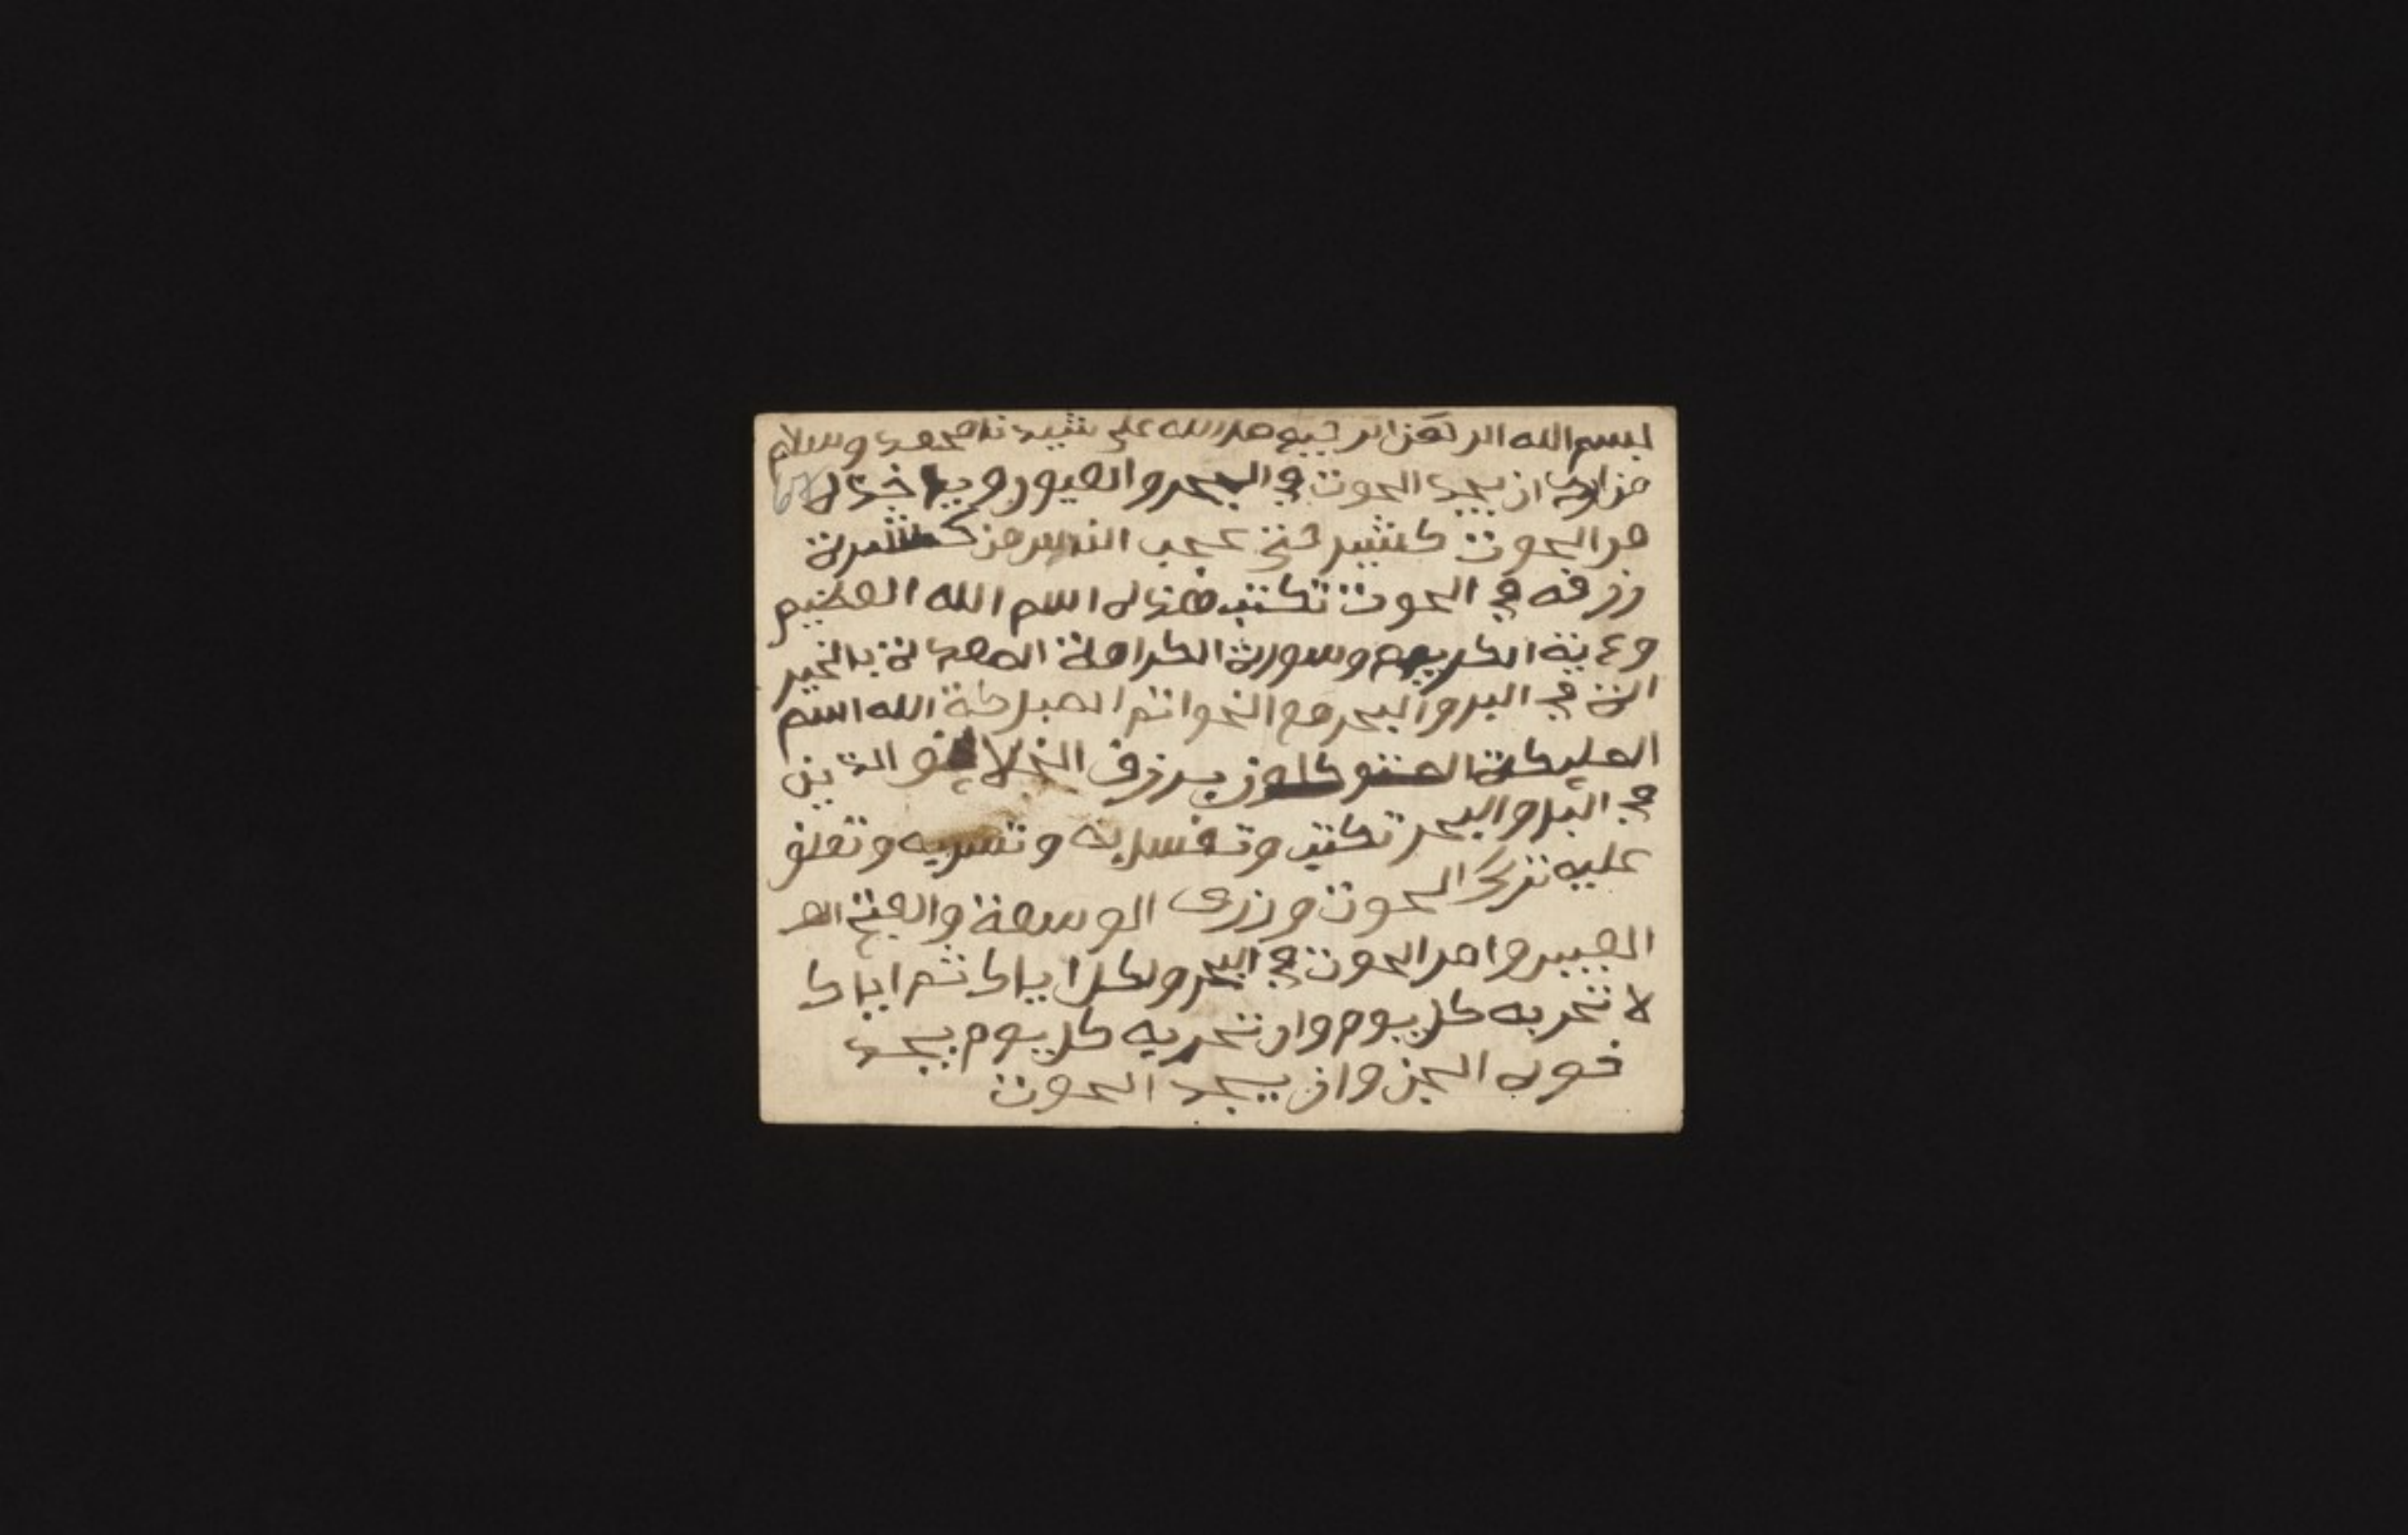 بسم الله الرحمن الرحيم صل الله على سيدنا محمد وسلم
من اراد ان يجد الحوت في البحر والصيور ويا خذ له
67
صر الحوت كثير حتى عجب الناس من كثرة
رزقه في الحوت تكتب هذه اسم الله العظيم
وءاية الكريم وسورة الكرامة المعدلة بالخير
الله في البر والبحر مع الخواتم المبركة الله اسم
المليكة المتوكلون برزق الخلايق الذين
في البر والبحر تكتب وتغسل به وتشربه وتعلق
عليه تري الحوت وتري الوسعة والفتح
الصيير وامر الحوت في البحر ولكن اياك ثم اياك
لا تخر به كل يوم وان تخر به كل يوم يجد
خويه الجن وان يجد الحوت